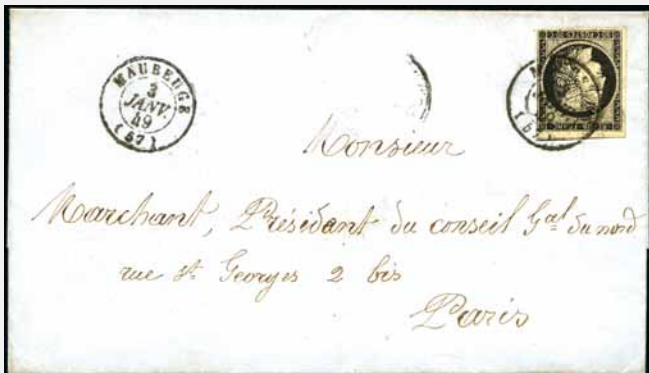 MAUBEUGE
3
JANV.
49
(57)
Monsieur
Marchant, Président du conseil Gal du nord
rue St Georges 2 bis
Paris